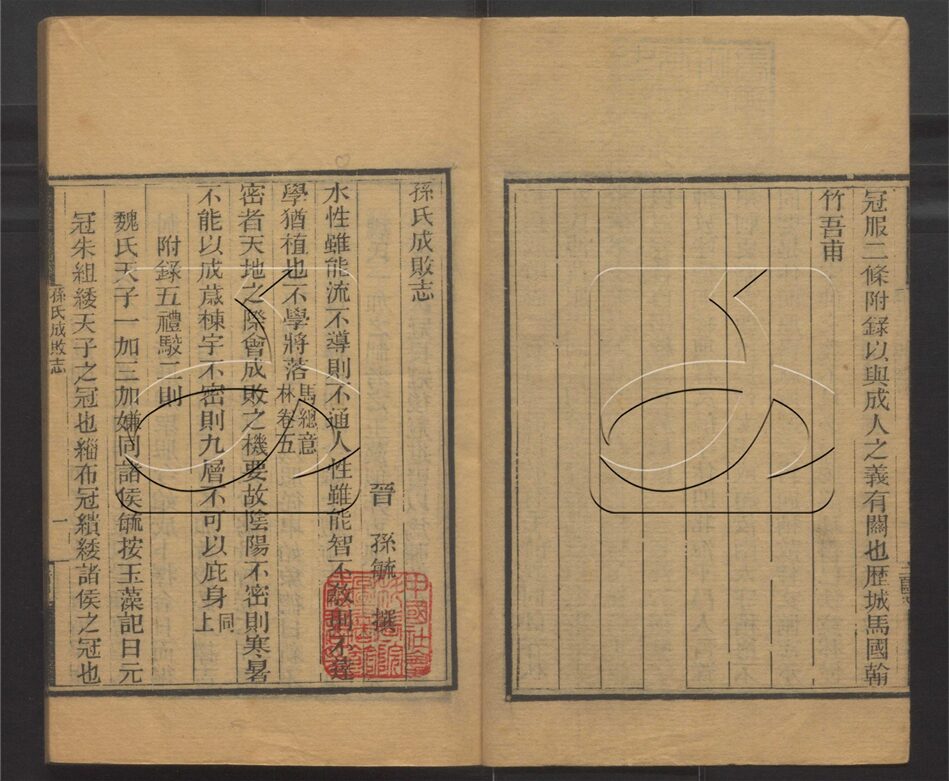 冠服二條附錄以與成人之義有關也歷城馬國翰
竹吾甫
孫氏成敗志
晉　孫毓　撰
水性雖能流不導則不通人性雖能智不敎則不達
學猶植也不學將落馬總意林卷五
密者天地之際會成敗之機要故陰陽不密則寒暑
不能以成歲棟宇不密則九層不可以庇身同上
附錄五禮駁二則
魏氏天子一加三加嫌同諸侯毓按玉藻記曰元
冠朱組緌天子之冠也緇布冠繢緌諸侯之冠也
孫氏成敗志
一